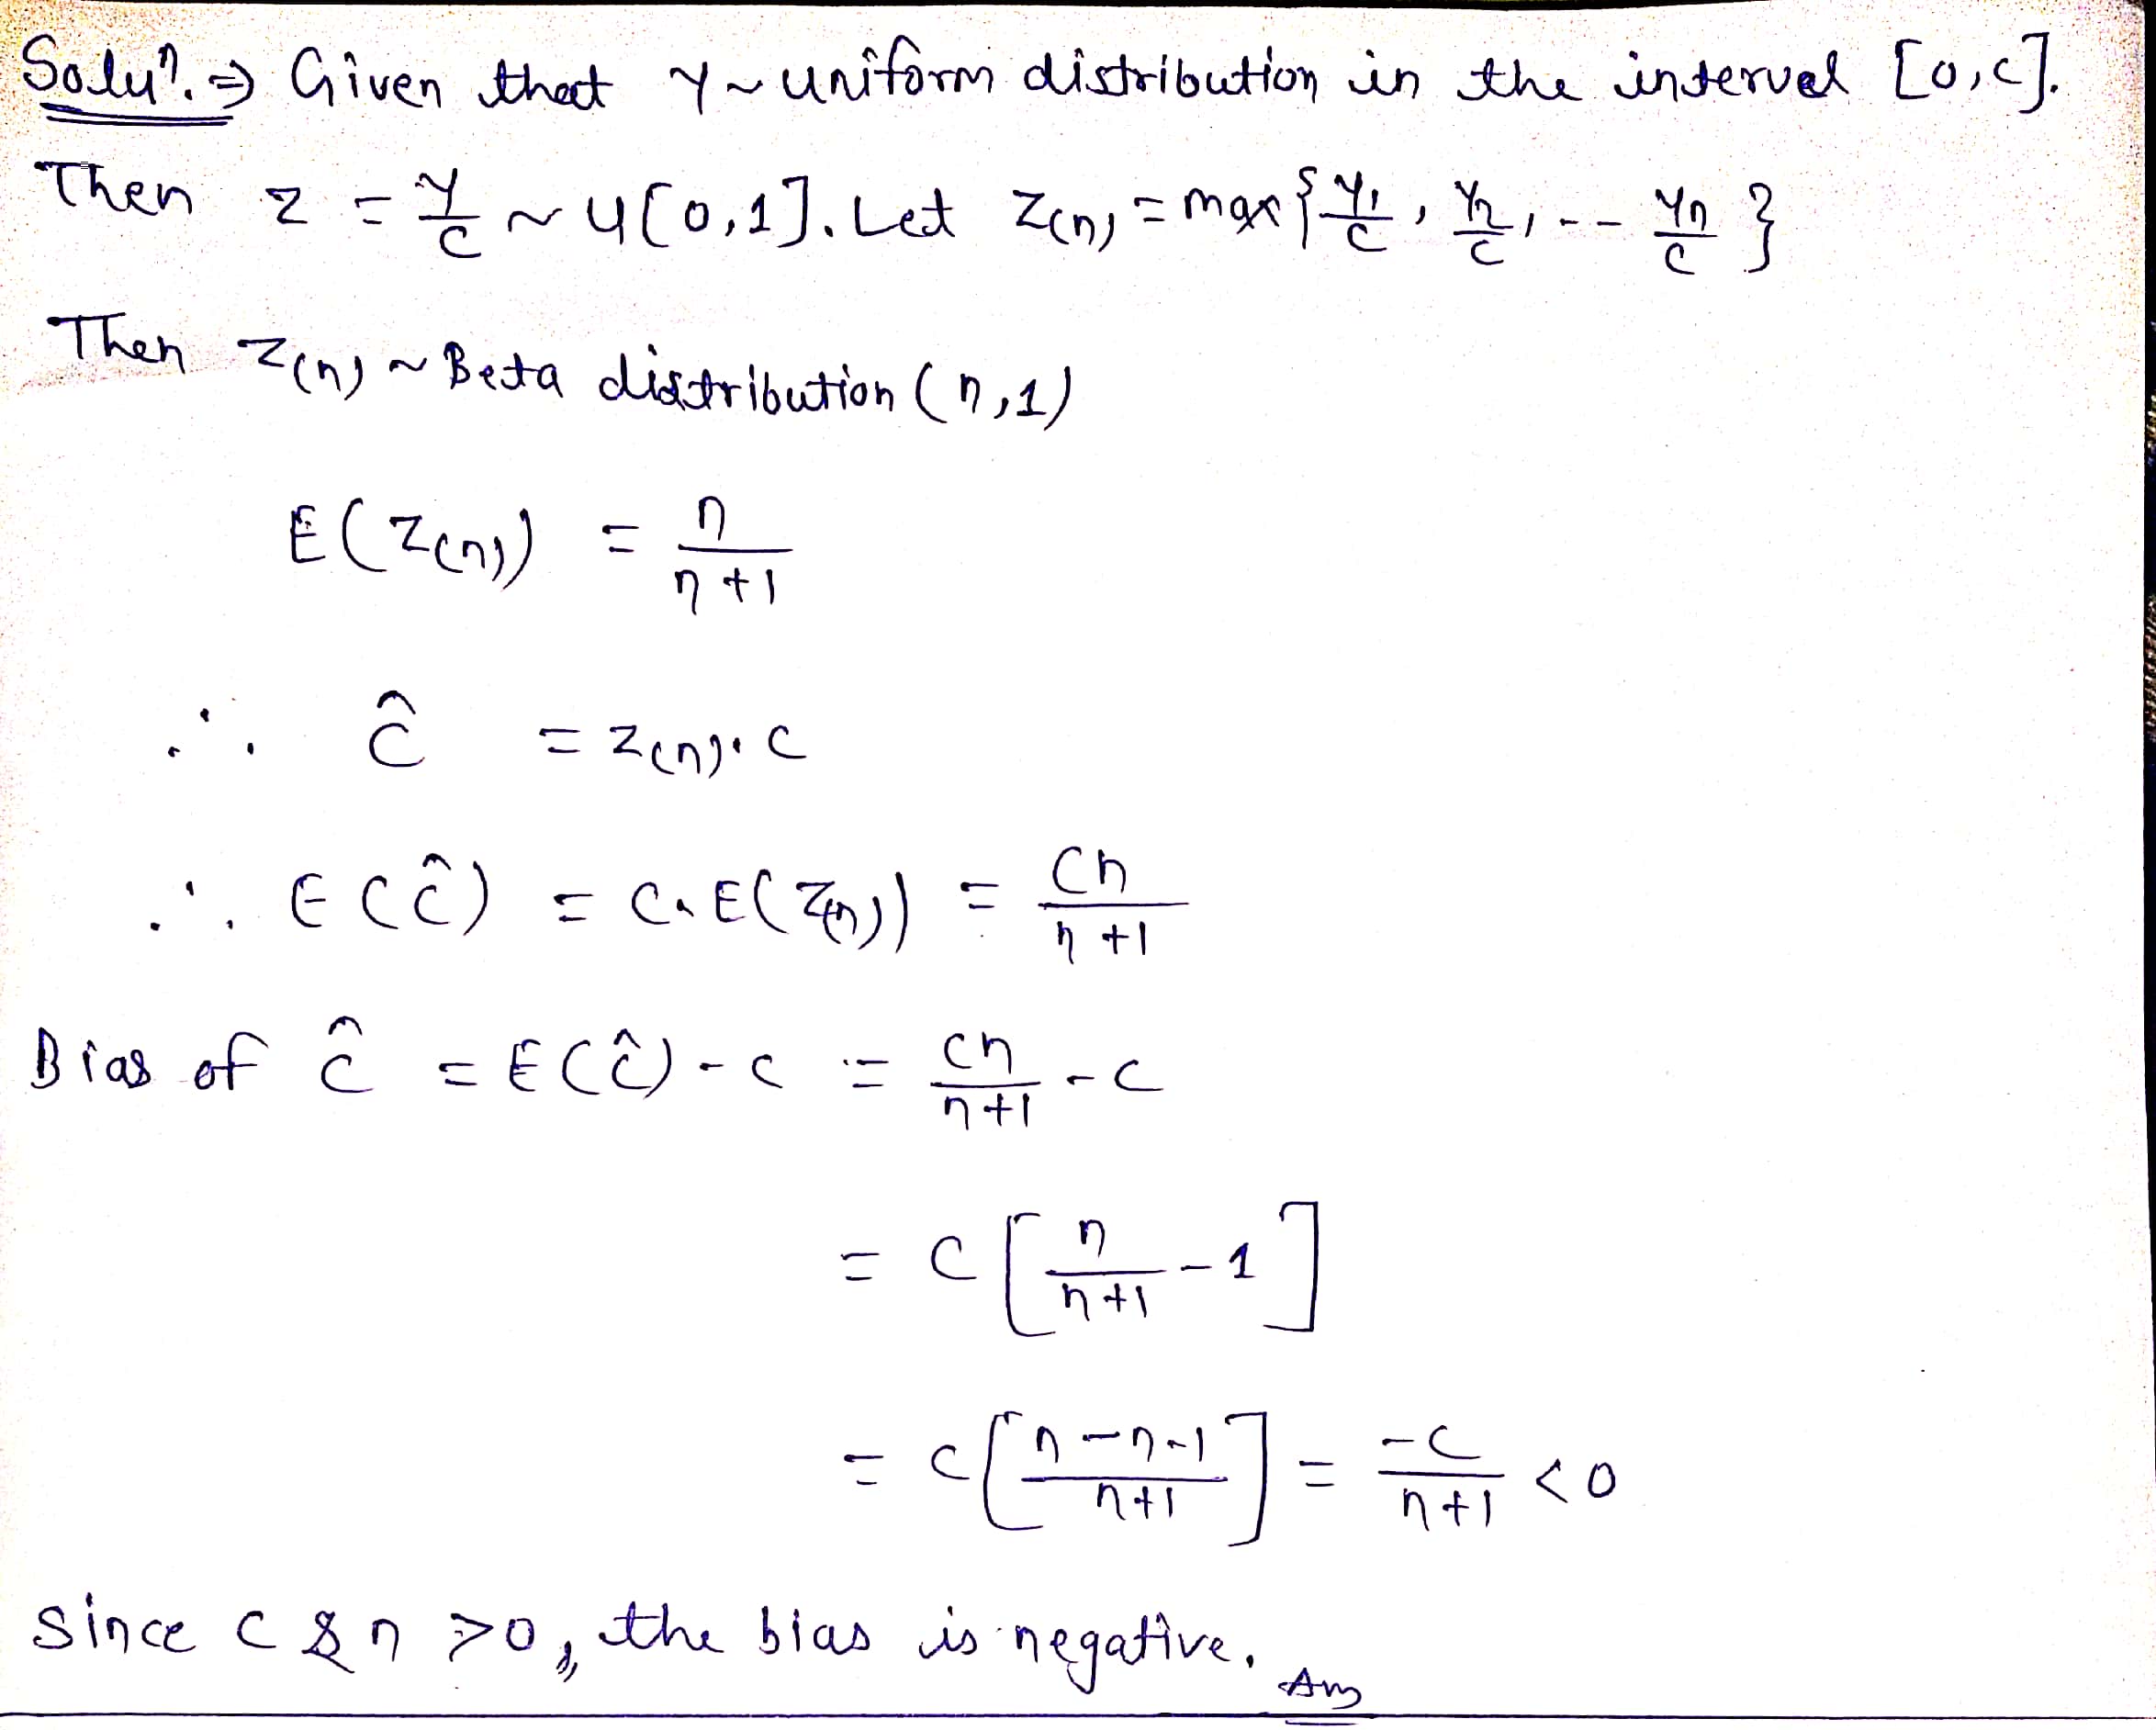 Solun. ⇒ Given that Y ~ uniform distribution in the interval [0,c].
Then z = Y/c ~ U[0,1]. Let Z(n) = max{Y1/c, Y2/c, -- Yn/c}
Then Z(n) ~ Beta distribution (n,1)
E(Z(n)) = n/n+1
∴ ĉ = Z(n). c
∴ E(ĉ) = c. E(Z(n)) = cn/n+1
Bias of ĉ = E(ĉ) - c = cn/n+1 - c
= c[n/n+1 - 1]
= c[n-n-1/n+1] = -c/n+1 <0
Since c & n >0, the bias is negative. Ans